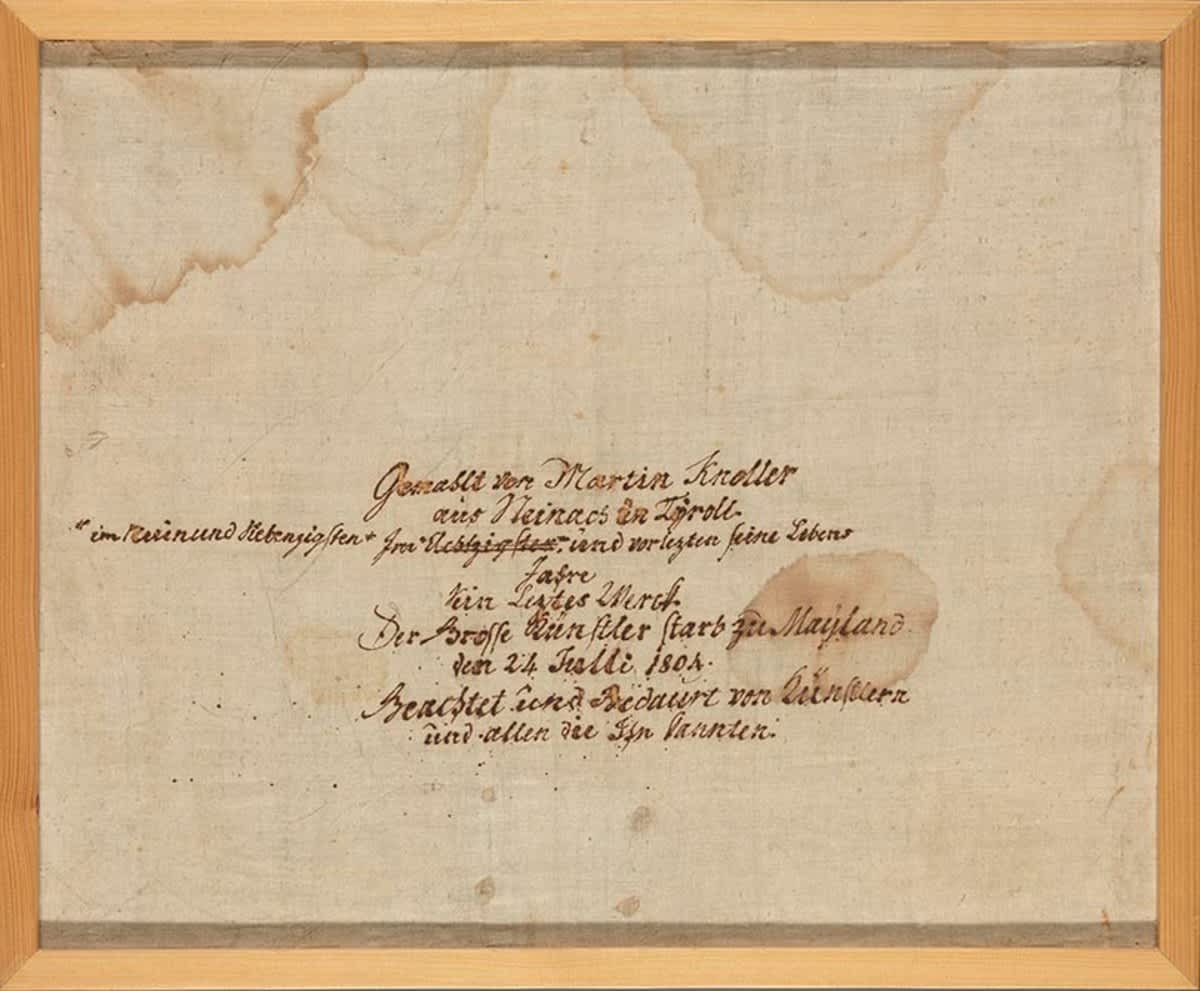 Gemahlt von Martin Knoller
aus Steinach in Tÿroll.
"im Neunundsiebenzigsten" Im Achtzigsten und vorlezten seine Lebens
Jahre
Sein Leztes Werck
Der Grosse Künstler starb zu Mayland
den 24 Julli 1804.
Beachtet und Bedaurt von Künstlern
und allen die Ihn kannten.